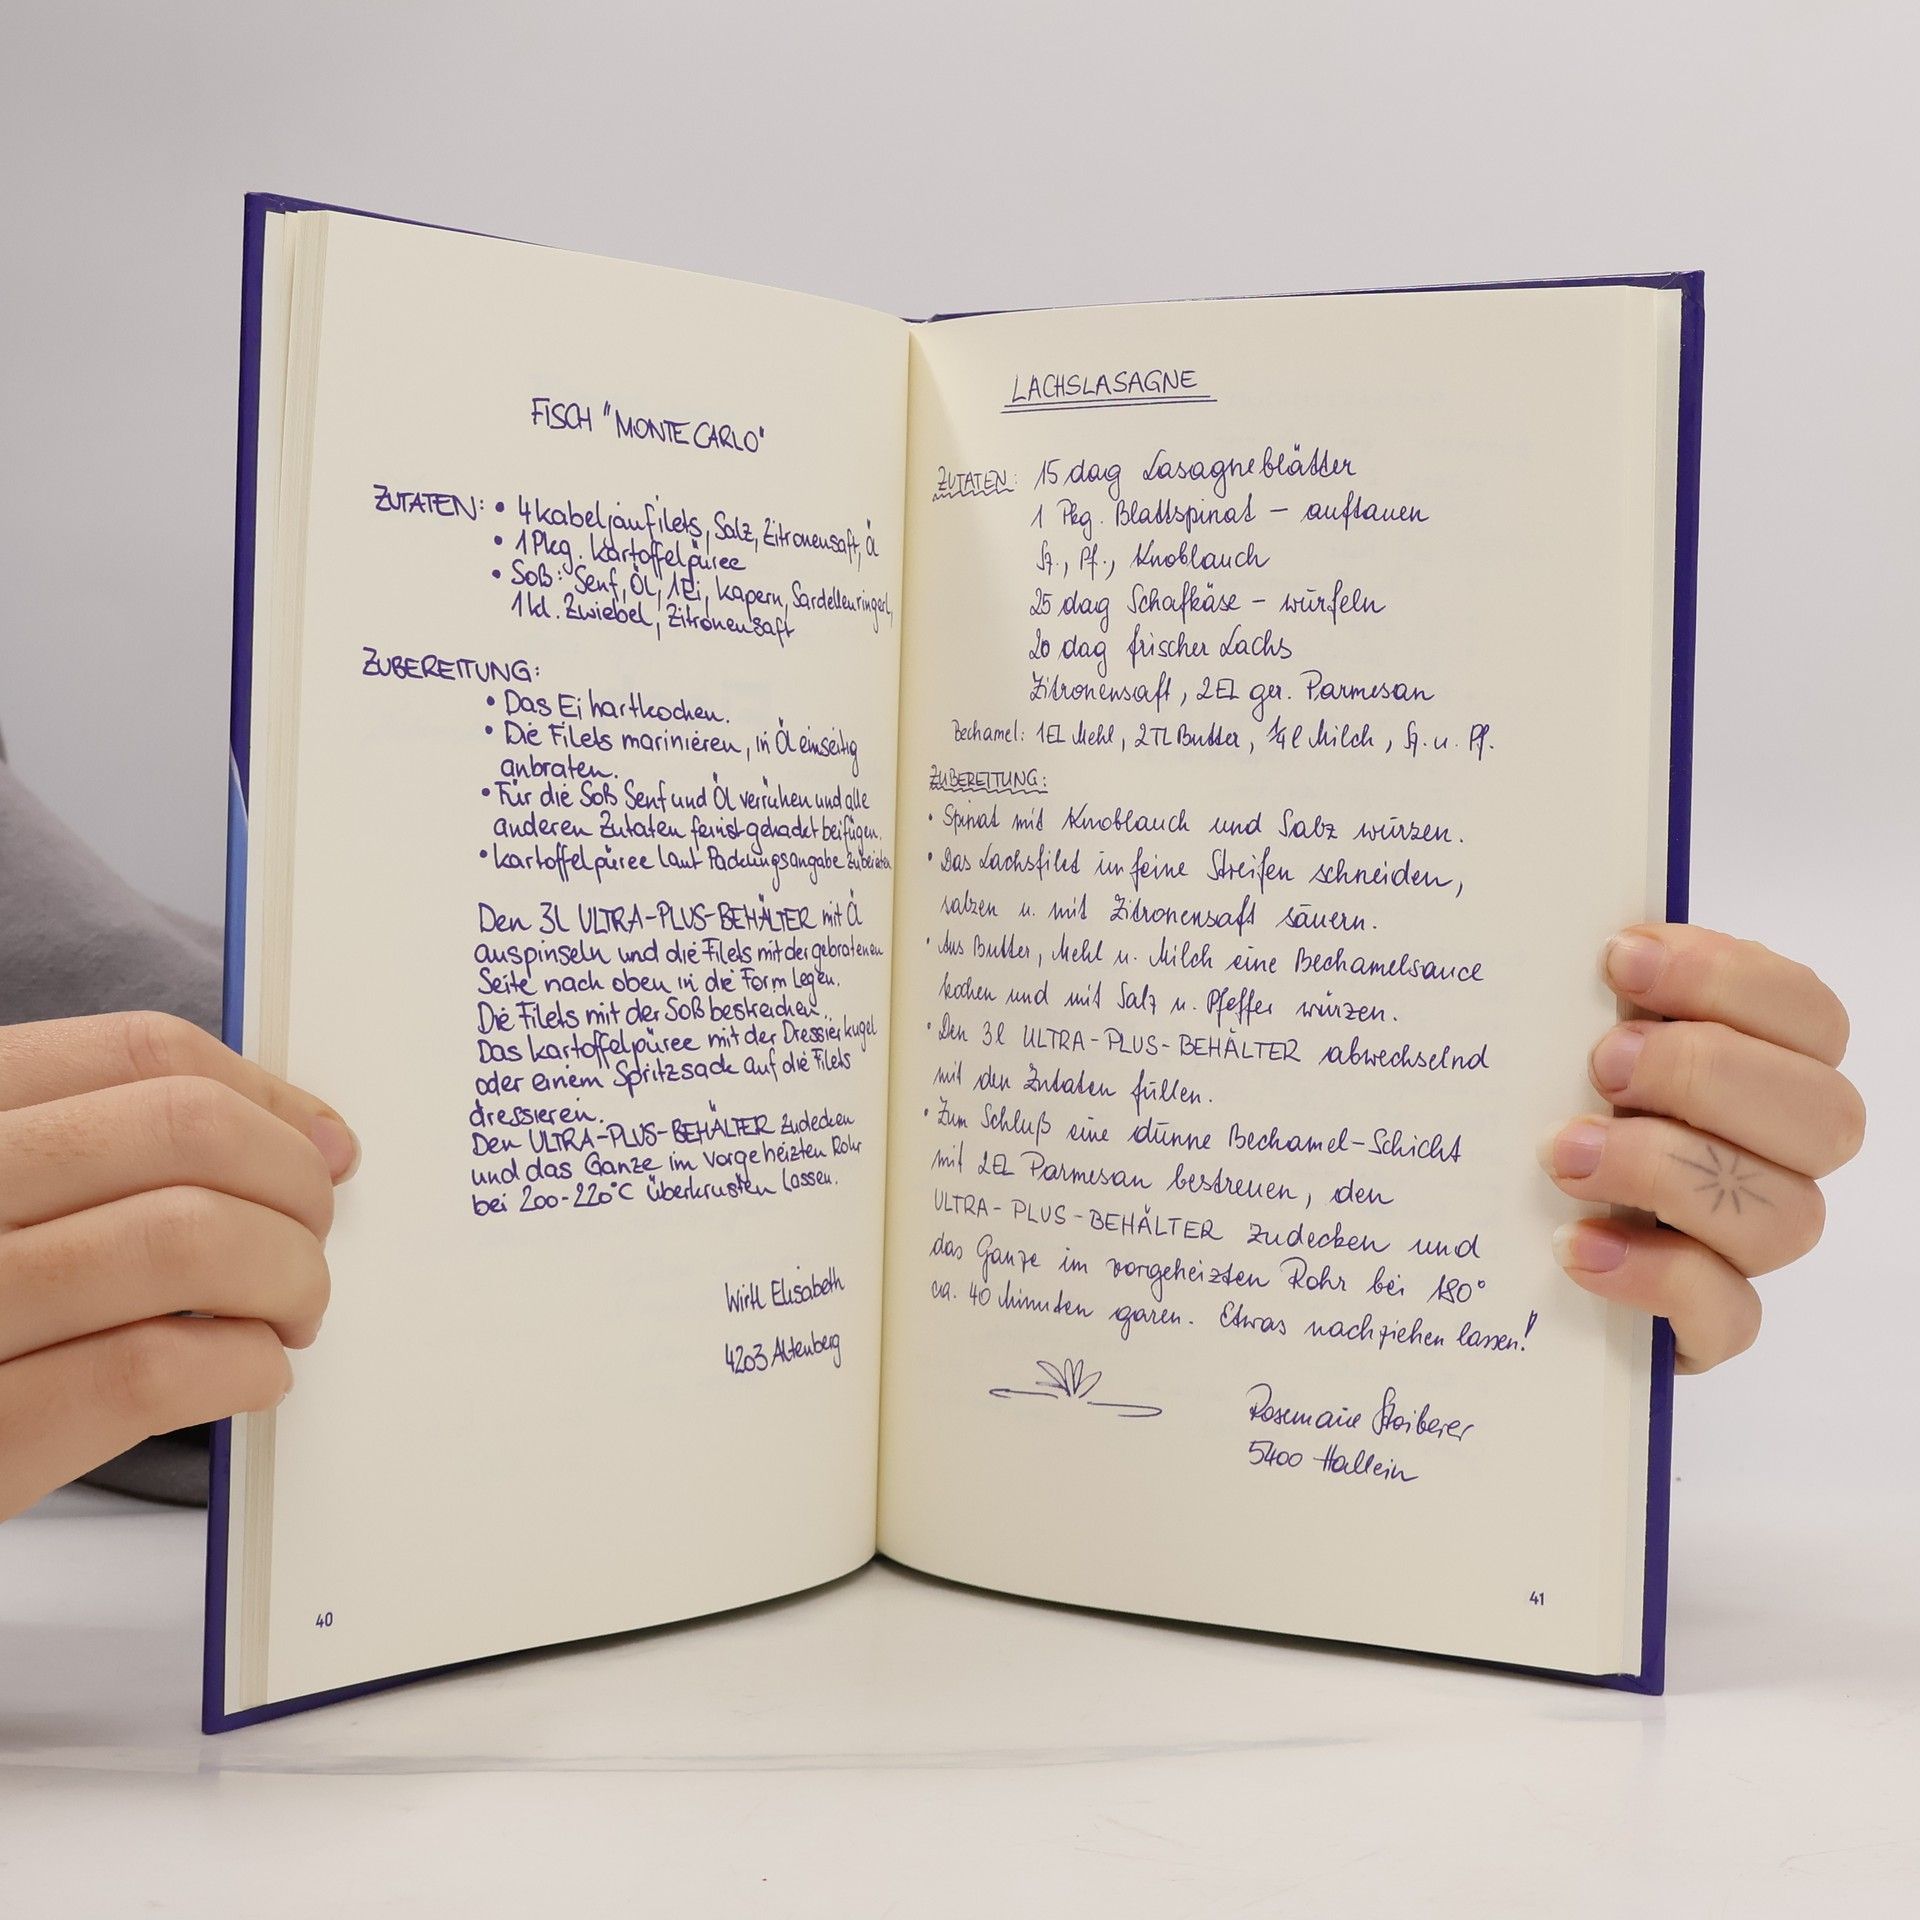 FISCH "MONTE CARLO"
ZUTATEN: • 4 Kabeljaufilets, Salz, Zitronensaft, Öl
• 1 Pkg. Kartoffelpüree
• Soß: Senf, Öl, 1 Ei, Kapern, Sardellenringerl,
1 kl. Zwiebel, Zitronensaft
ZUBEREITUNG:
• Das Ei hartkochen.
• Die Filets marinieren, in Öl einseitig
anbraten.
• Für die Soß Senf und Öl verrühen und alle
anderen Zutaten feinst gehackt beifügen.
• Kartoffelpüree laut Packungsangabe zubereiten
Den 3l ULTRA-PLUS-BEHÄLTER mit Öl
auspinseln und die Filets mit der gebratenen
Seite nach oben in die Form legen.
Die Filets mit der Soß bestreichen.
Das Kartoffelpüree mit der Dressierkugel
oder einem Spritzsack auf die Filets
dressieren.
Den ULTRA-PLUS-BEHÄLTER zudecken
und das Ganze im vorgeheizten Rohr
bei 200-220°C überkrusten lassen.
Wirtl Elisabeth
4203 Altenberg
40
LACHSLASAGNE
ZUTATEN: 15 dag Lasagneblätter
1 Pkg. Blattspinat - auftauen
Sz., Pf., Knoblauch
25 dag Schafkäse - würfeln
20 dag frischer Lachs
Zitronensaft, 2 EL ger. Parmesan
Bechamel: 1 EL Mehl, 2 TL Butter, 1/4 l Milch, Sz. u. Pf.
ZUBEREITUNG:
• Spinat mit Knoblauch und Salz würzen.
• Das Lachsfilet in feine Streifen schneiden,
salzen u. mit Zitronensaft säuern.
• Aus Butter, Mehl u. Milch eine Bechamelsauce
kochen und mit Salz u. Pfeffer würzen.
• Den 3l ULTRA-PLUS-BEHÄLTER abwechselnd
mit den Zutaten füllen.
• Zum Schluß eine dünne Bechamel-Schicht
mit 2 EL Parmesan bestreuen, den
ULTRA-PLUS-BEHÄLTER zudecken und
das Ganze im vorgeheizten Rohr bei 180°
ca. 40 Minuten garen. Etwas nachziehen lassen!
Rosemarie Stoiberer
5400 Hallein
41